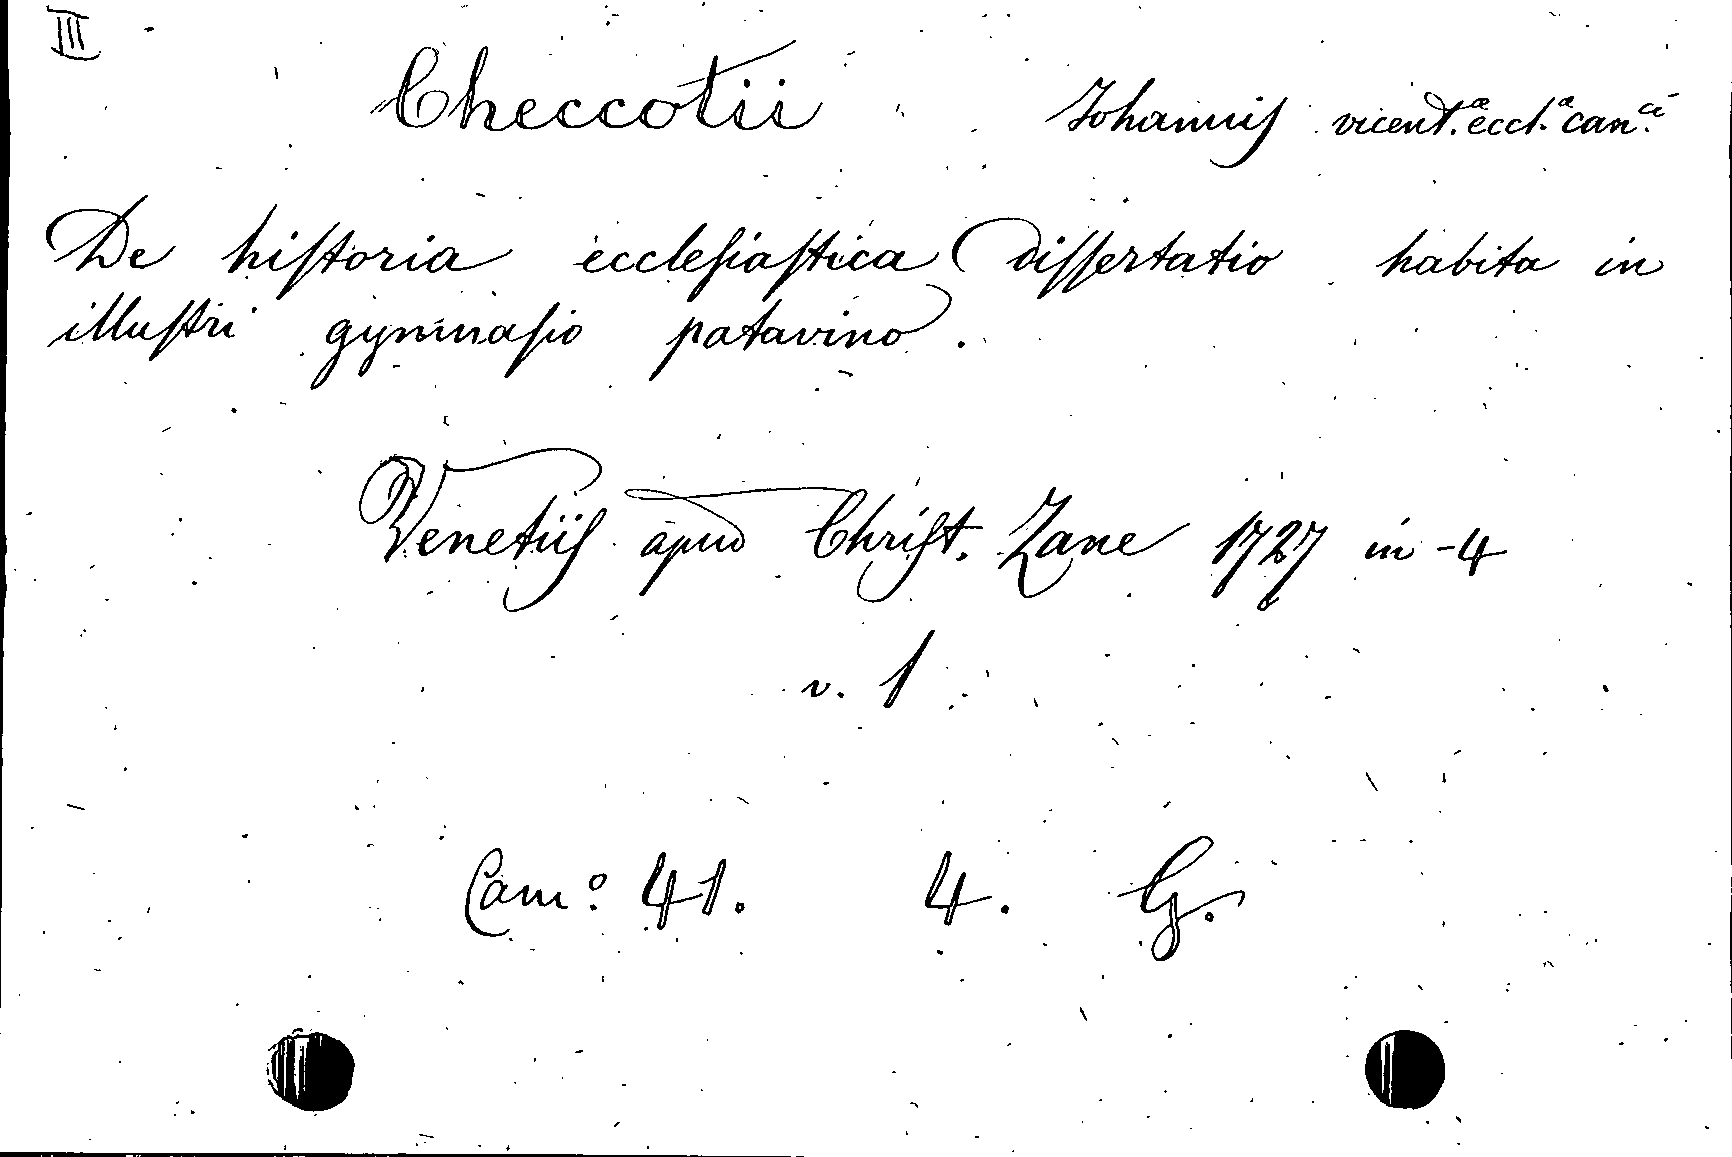 III
Checcotii Johannis vicent.æ eccl.æ can.ci
De historia ecclesiastica dissertatio habita in
illustri gymnasio patavino.
Venetiis apud Christ. Zane 1727 in-4
v. 1
Cam.º 41. 4. G.